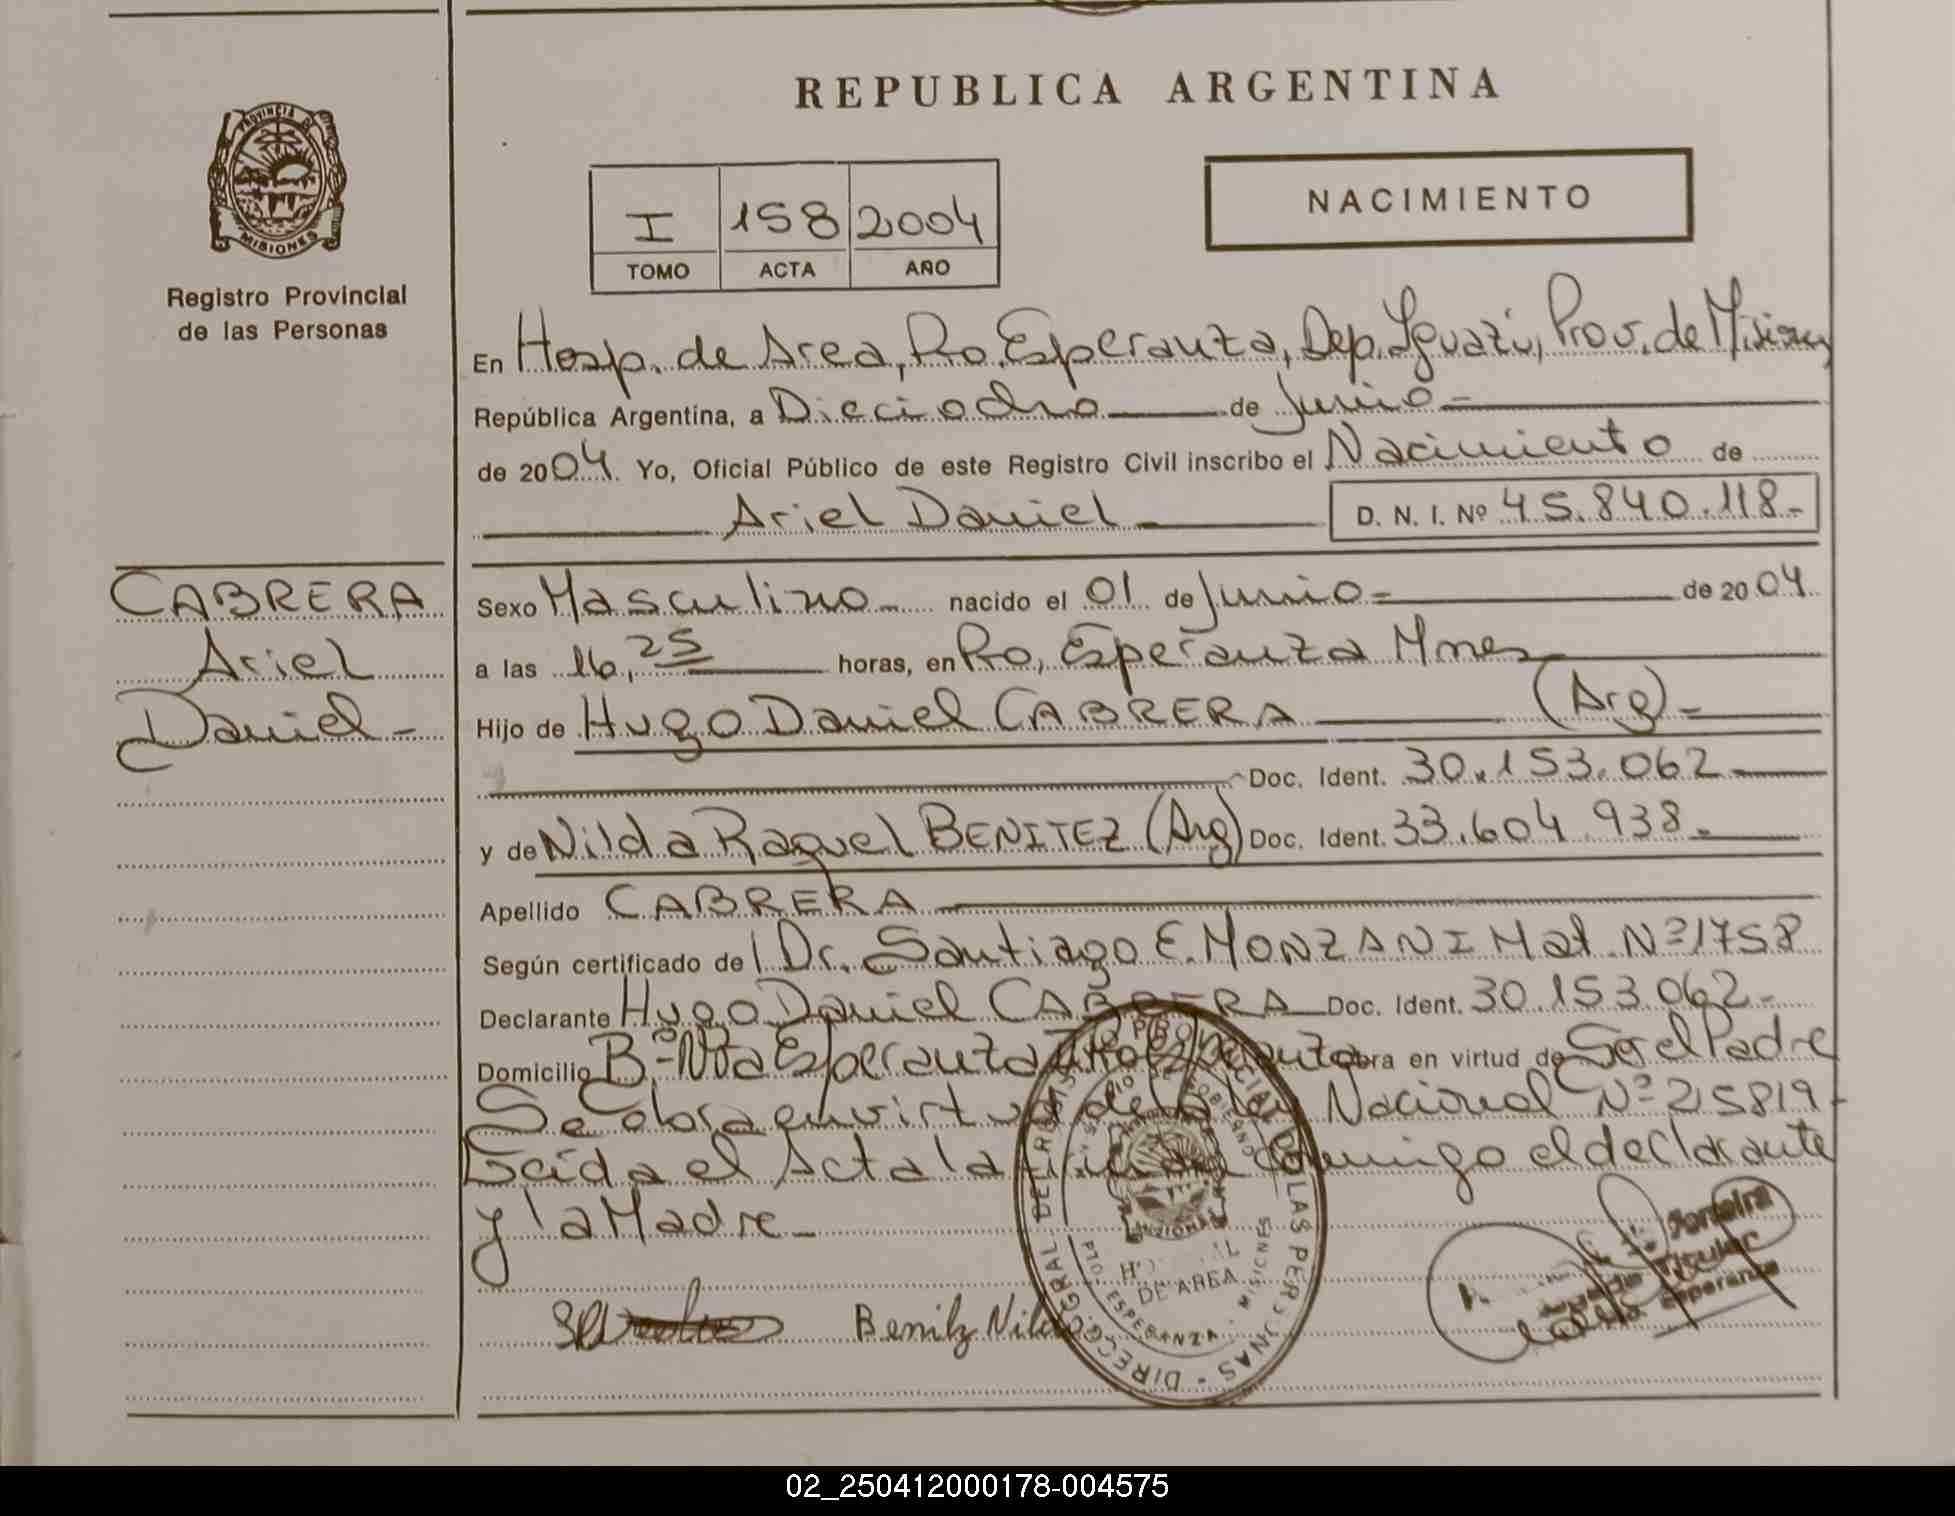 REPUBLICA ARGENTINA
PROVINCIA DE
MISIONES
Registro Provincial
de las Personas
I 158 2004
TOMO ACTA AÑO
NACIMIENTO
En Hosp. de Area, Pto. Esperanza, Dep. Iguazú, Prov. de Misiones
República Argentina, a Dieciocho de Junio
de 2004. Yo, Oficial Público de este Registro Civil inscribo el Nacimiento de
Ariel Daniel D. N. I. Nº 45.840.118-
CABRERA
Ariel
Daniel-
Sexo Masculino nacido el 01 de Junio de 2004
a las 16,25 horas, en Pto. Esperanza Mnes
Hijo de Hugo Daniel CABRERA (Arg)
Doc. Ident. 30.153.062
y de Nilda Raquel BENITEZ (Arg) Doc. Ident. 33.604.938.
Apellido CABRERA
Según certificado de Dr. Santiago E. MONZANI Mat. Nº 1758
Declarante Hugo Daniel CABRERA Doc. Ident. 30.153.062-
Domicilio Bº Nva Esperanza Pto Esperanza obra en virtud de Ser el Padre
Se obra en virtud de la Ley Nacional Nº 25819-
Leída el Acta la firman Conmigo el declarante
y la Madre-
Benitz Nilda
DIRECC. GRAL. DEL REGISTRO PROVINCIAL DE LAS PERSONAS
MINISTERIO DE GOBIERNO
MISIONES
DE AREA
PTO. ESPERANZA - MISIONES
Ferreira
Titular
Esperanza
02_250412000178-004575